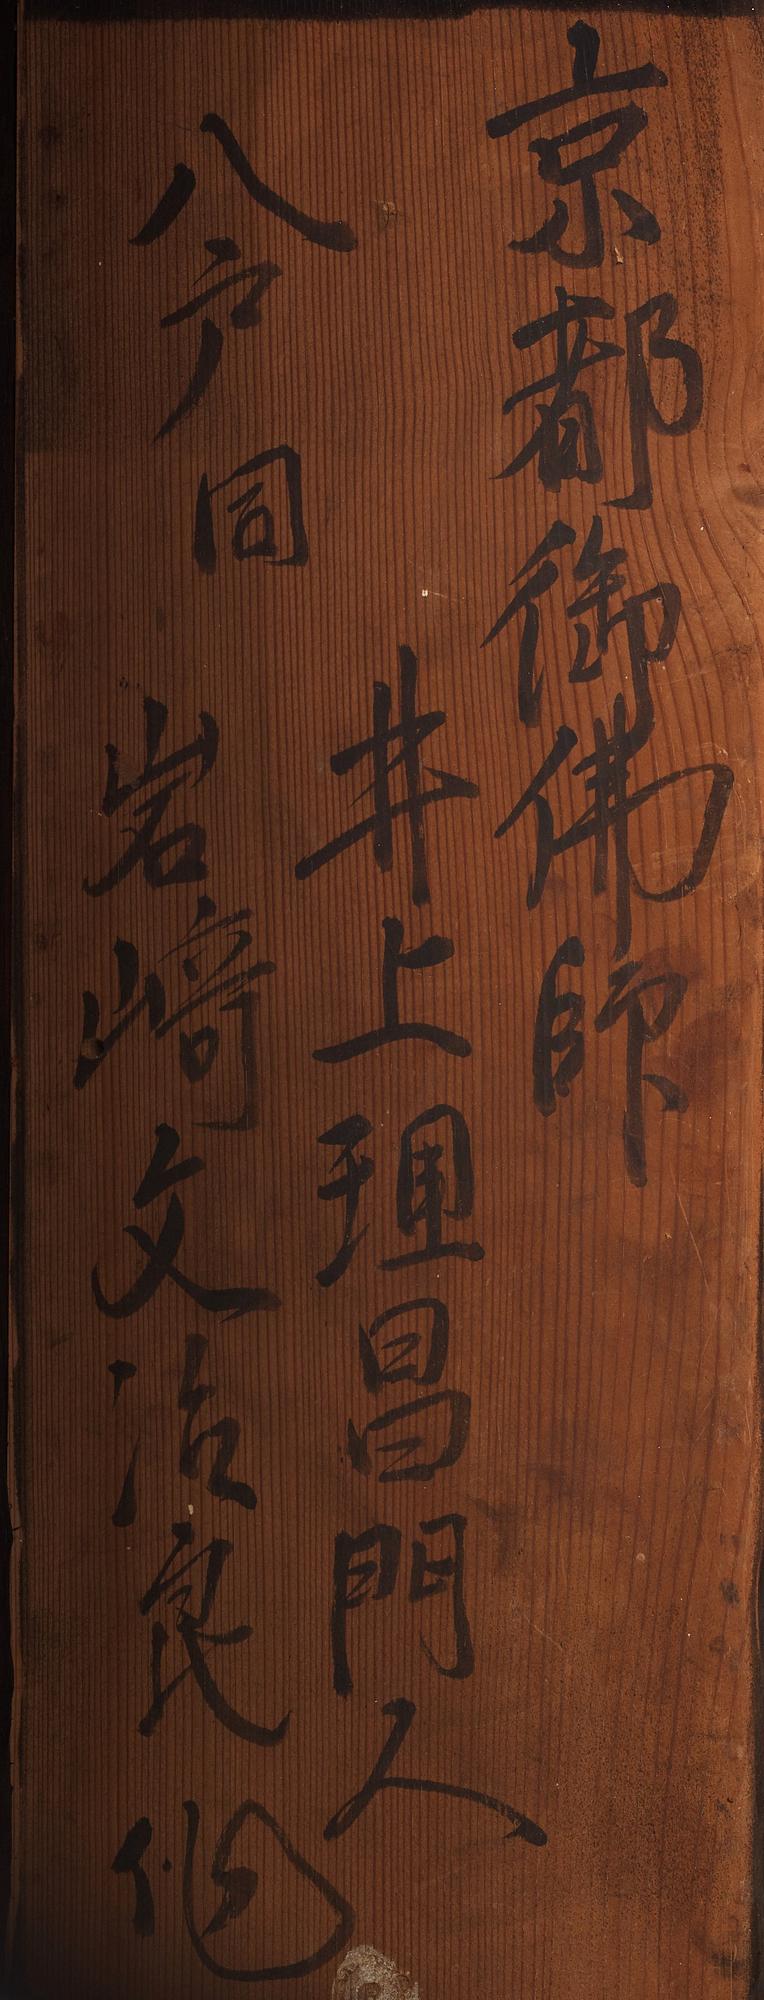 京都御佛師
井上理昌門人
八戸同
岩﨑文治良